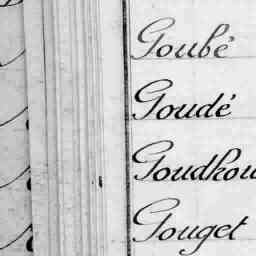 Goubé
Goudé
Goudhou
Gouget